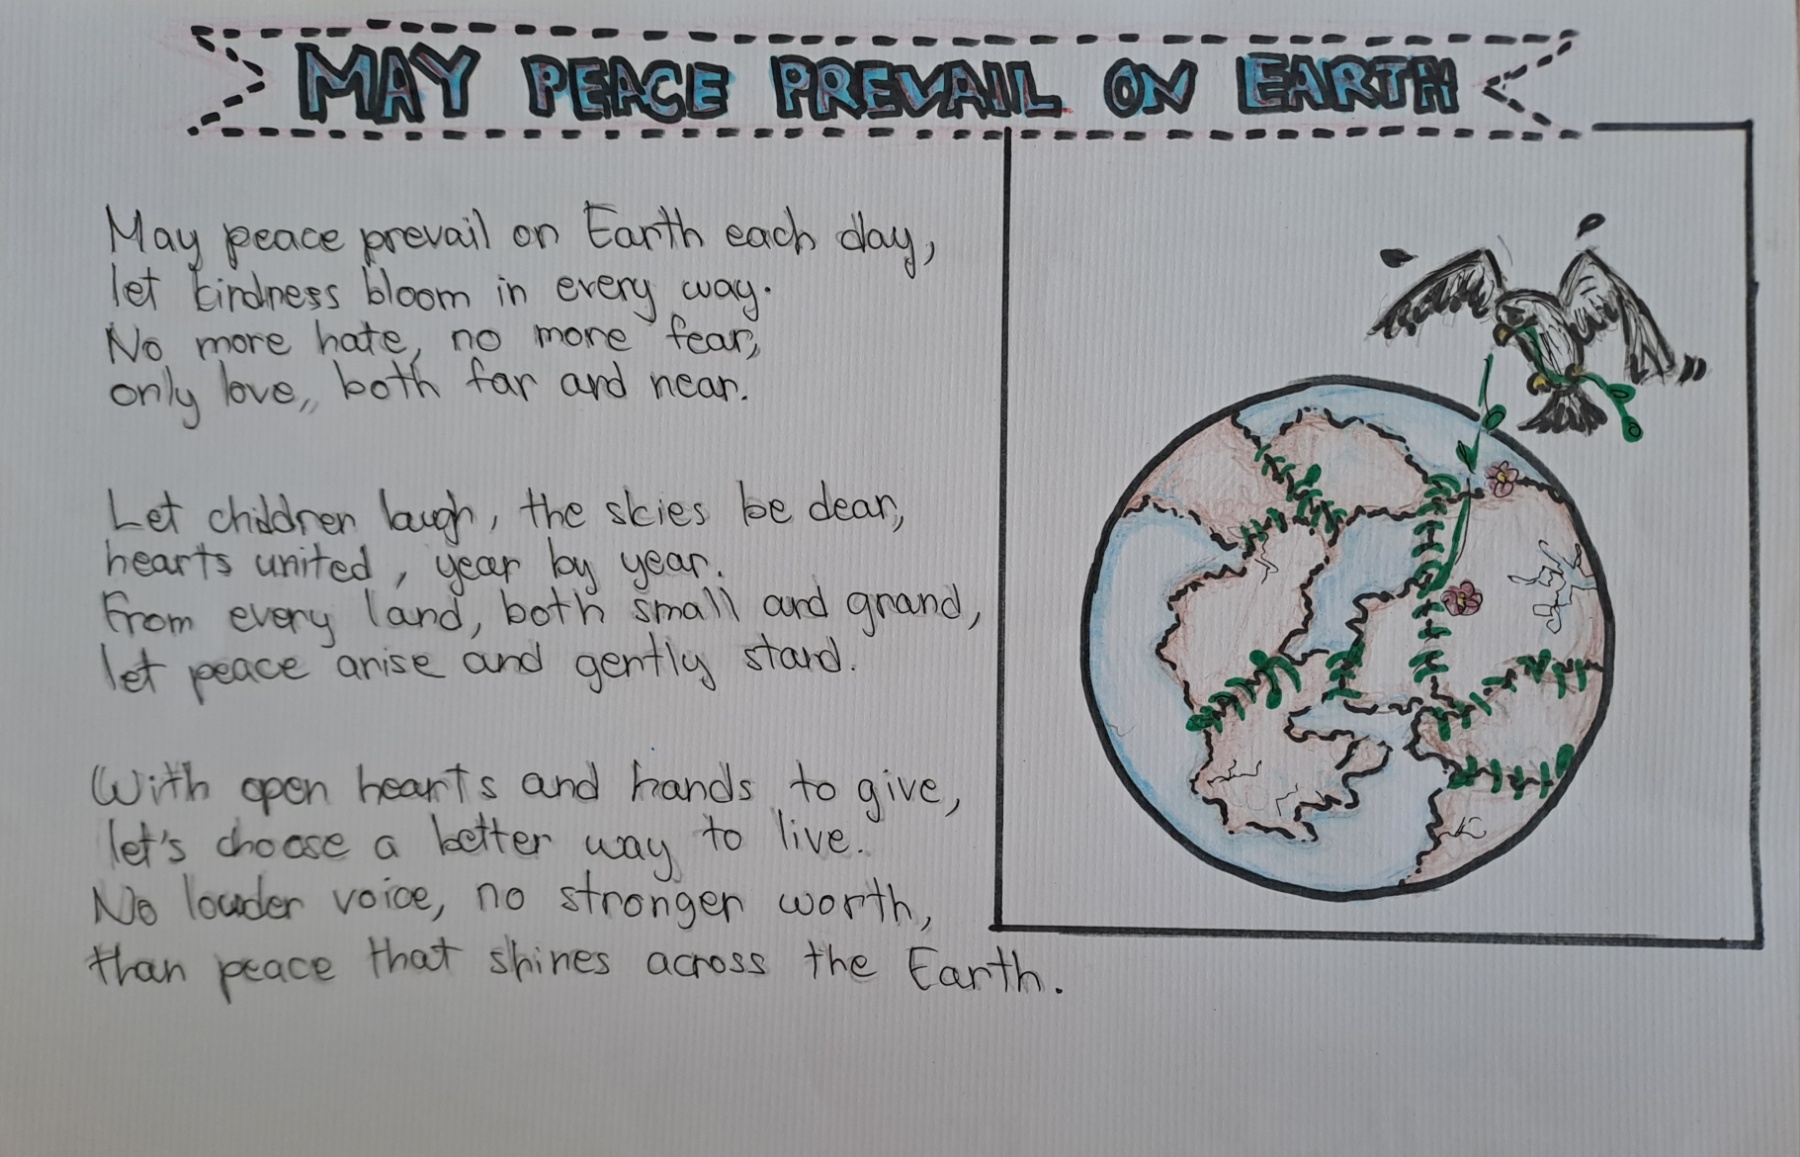 MAY PEACE PREVAIL ON EARTH
May peace prevail on Earth each day,
let kindness bloom in every way.
No more hate, no more fear,
only love,, both far and near.
Let children laugh, the skies be dear,
hearts united, year by year.
From every land, both small and grand,
let peace arise and gently stand.
With open hearts and hands to give,
let's choose a better way to live.
No louder voice, no stronger worth,
than peace that shines across the Earth.